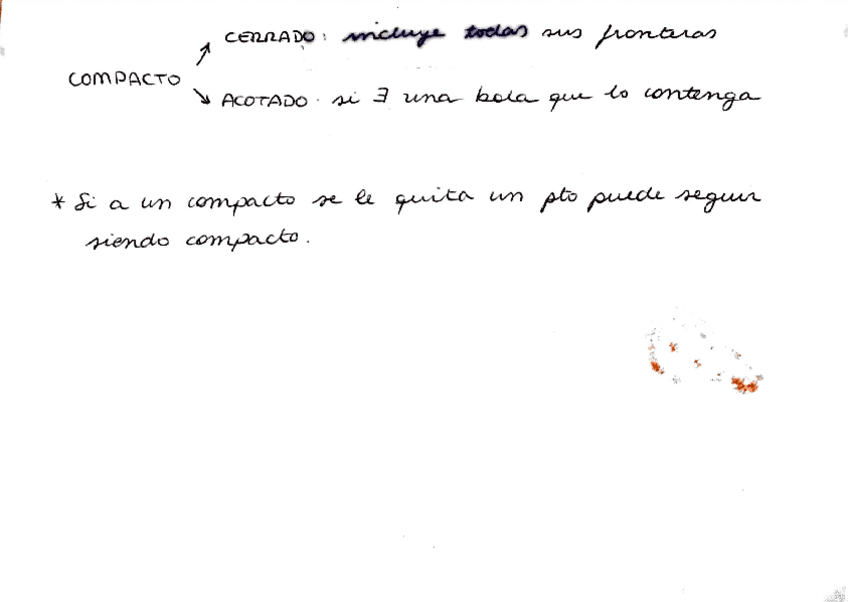 CERRADO: incluye todas sus fronteras
COMPACTO
ACOTADO. si ∃ una bola que lo contenga
* Si a un compacto se le quita un pto puede seguir
siendo compacto.